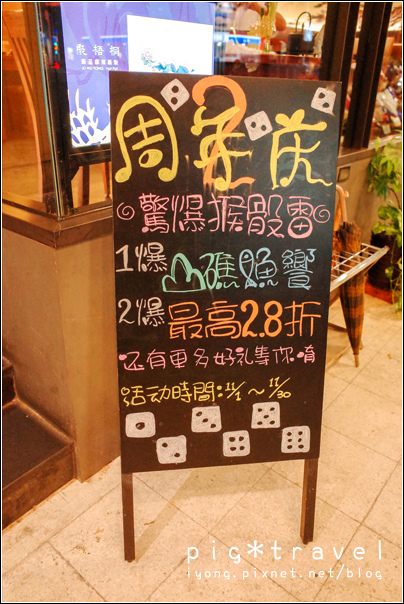 秦梧桐
周年庆
2
驚爆猴骰雷
1爆 山礁鱼饗
2爆 最高2.8折
还有更多好礼等你唷
活动時間:11/1～11/30
pig*travel
iyong.pixnet.net/blog